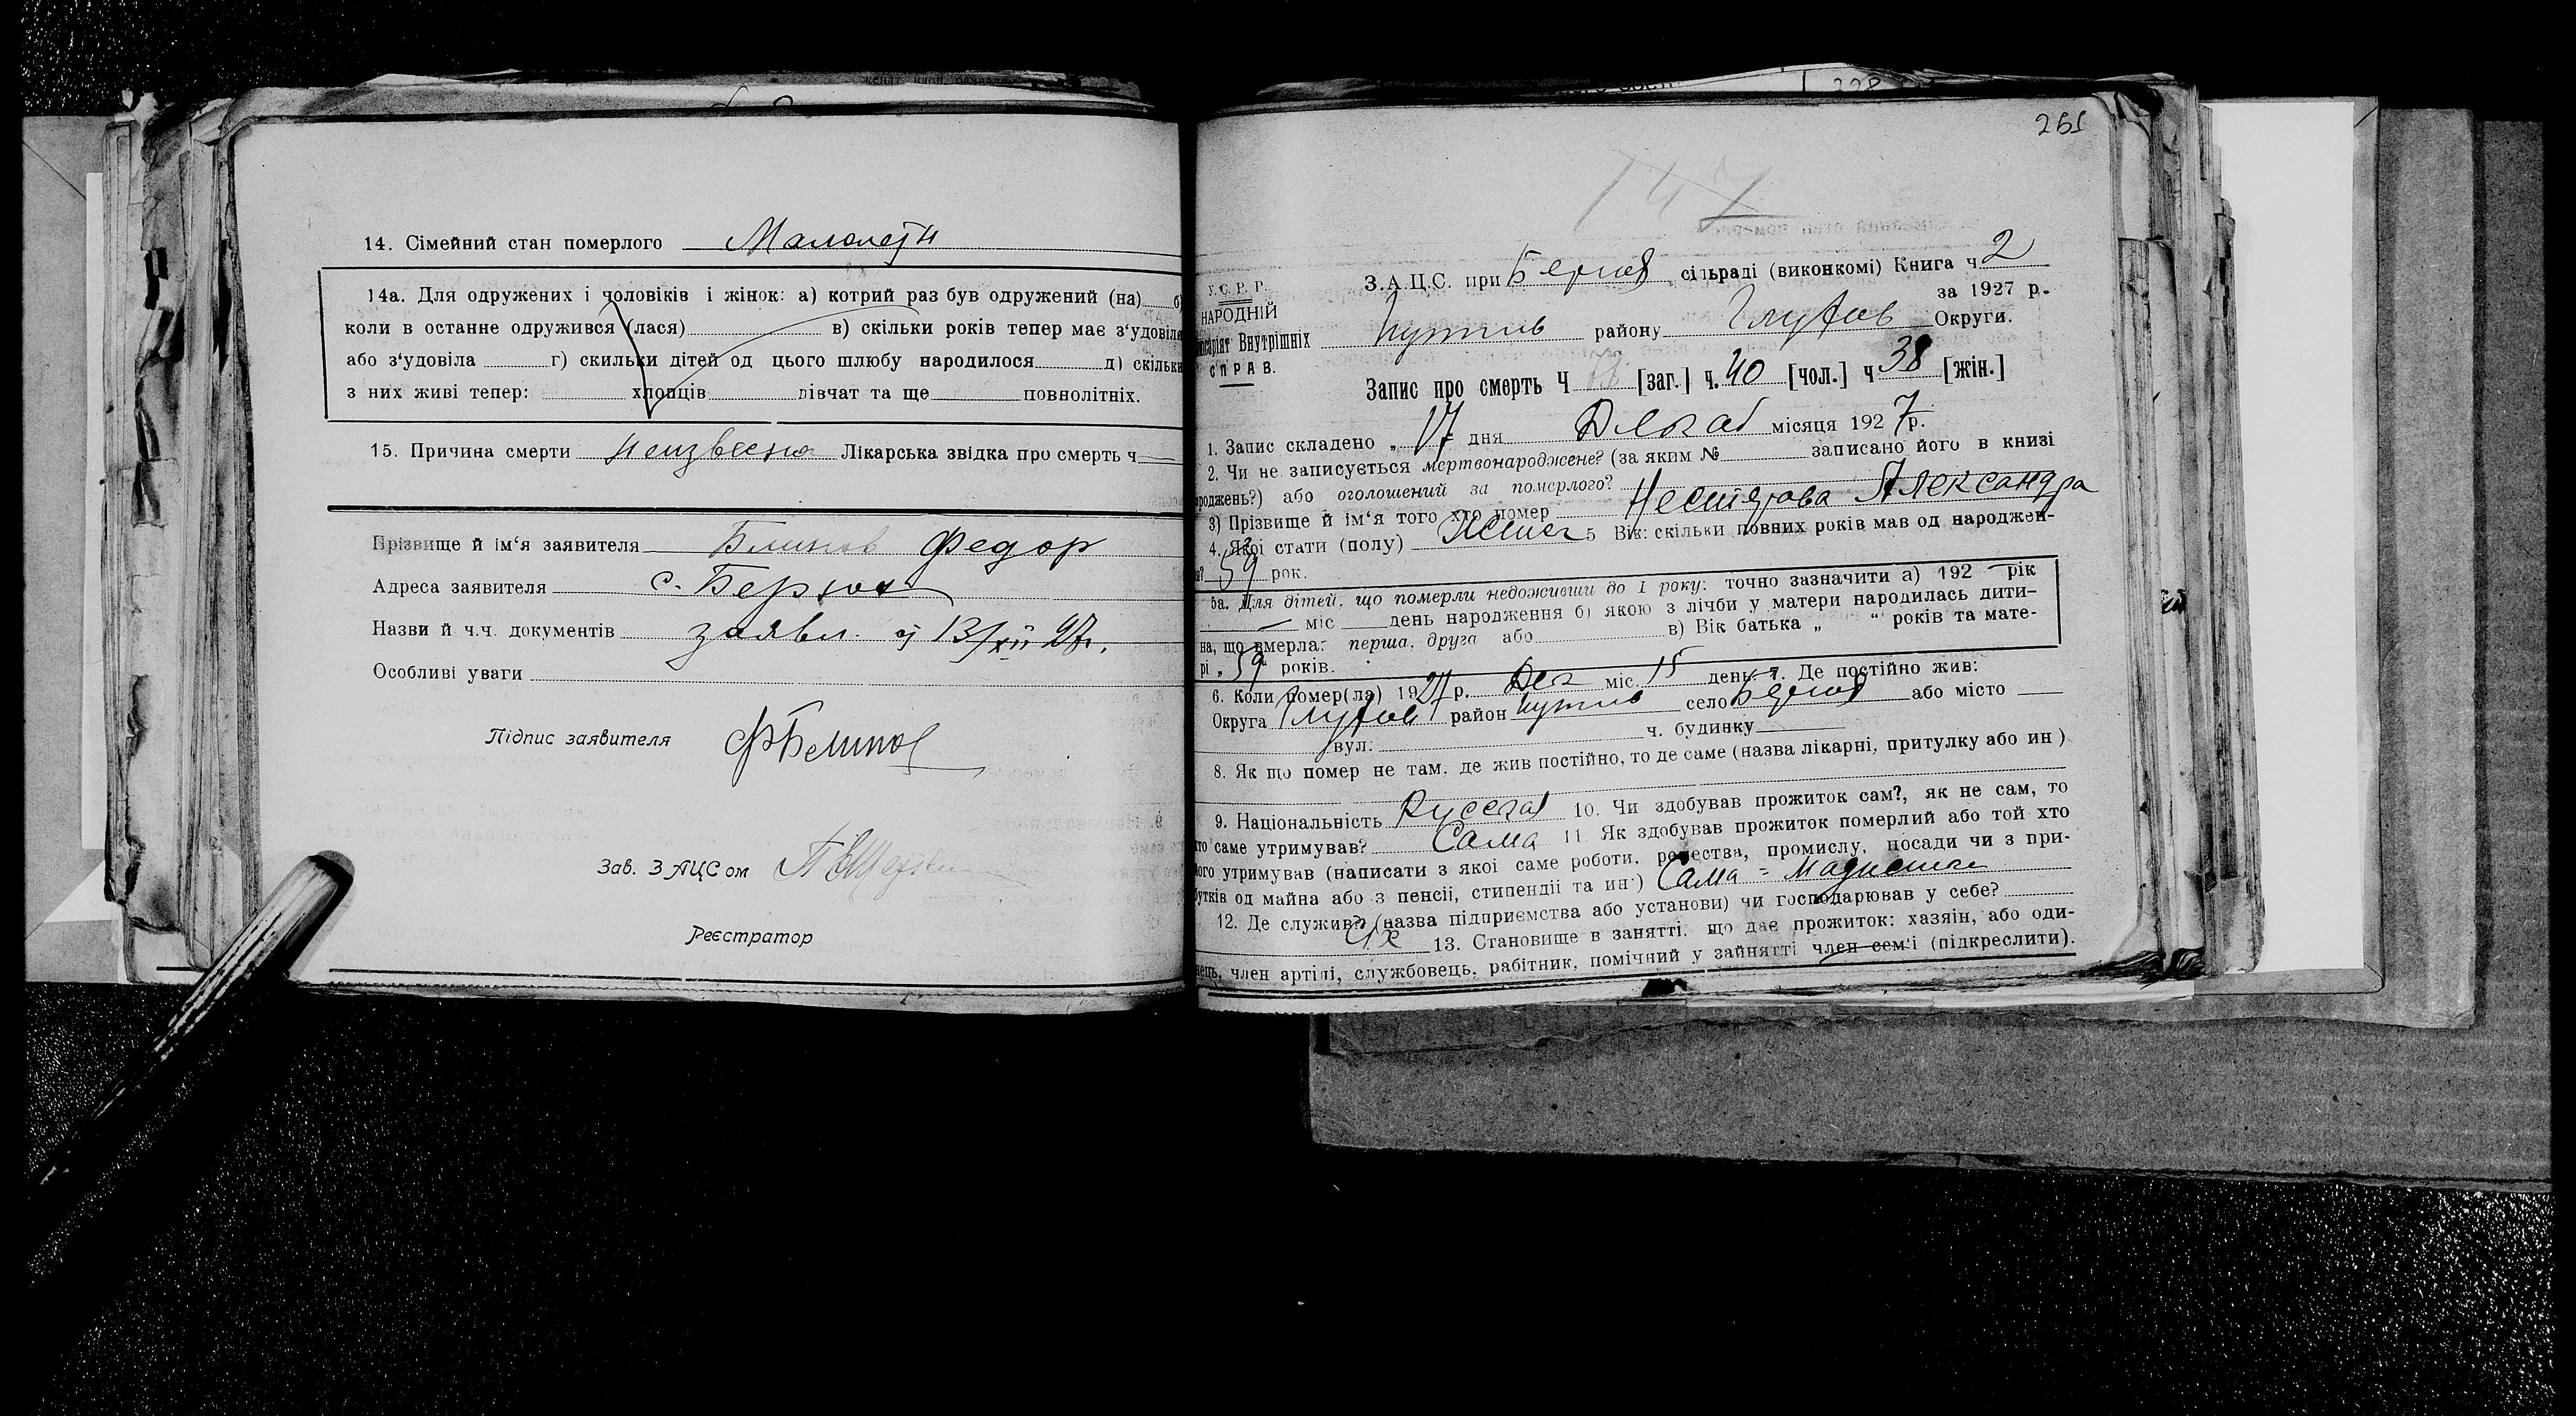 14. Сімейний стан померлого Малолетн
14а. Для одружених і чоловіків і жінок: а) котрий раз був одружений (на) б)
коли в останне одружився (лася) в) скільки років тепер має з‘удовіла
або з‘удовіла г) скильки дітей од цього шлюбу народилося д) скільки
з них живі тепер: хлопців дівчат та ще повнолітніх.
15. Причина смерти неизвестно Лікарська звідка про смерть ч
Прізвище й ім‘я заявителя Блинов Федор
Адреса заявителя с. Берюх
Назви й ч.ч. документів заявл. от 13/XII 27г.
Особливі уваги
Підпис заявителя ФБлинов
Зав. ЗАЦСом
Реєстратор
261
147
У.С.Р.Р.
НАРОДНІЙ
Внутрішніх
СПРАВ.
З.А.Ц.С. при Берюх сільраді (виконкомі) Книга ч. 2
за 1927 р.
Путив району Глухов Округи.
Запис про смерть Ч 78 [заг.] ч. 40 [чол.] ч 38 [жін.]
1. Запис складено „ 17 дня Декаб місяця 1927 р.
2. Чи не записується мертвонароджене? (за яким № записано його в книзі
народжень?) або оголошений за померлого?
3) Прізвище й ім‘я того хто помер Нестерова Александра
4. Якої стати (полу) Женск 5 Вік: скільки повних років мав од народжен-
ня? 59 рок.
5а. Для дітей, що померли недоживши до 1 року: точно зазначити а) 192 рік
міс день народження б) якою з лічби у матери народилась дити-
на, що вмерла: перша, друга або в) Вік батька „ “ років та мате-
рі „ 59 років.
6. Коли помер(ла) 1927 р. Дек міс. 15 день 7. Де постійно жив:
Округа Глухов район Путив село Берюх або місто
вул. ч. будинку
8. Як що помер не там, де жив постійно, то де саме (назва лікарні, притулку або ин)
9. Національність Русская 10. Чи здобував прожиток сам?, як не сам, то
хто саме утримував? Сама 11. Як здобував прожиток померлий або той хто
його утримував (написати з якої саме роботи, ремества, промислу, посади чи з при-
бутків од майна або з пенсії, стипендії та ин.) Сама =
12. Де служив? (назва підприємства або установи) чи господарював у себе?
13. Становище в занятті, що дає прожиток: хазяін, або оди-
нець, член артілі, службовець, рабітник, помічний у зайнятті член сем‘ї (підкреслити).